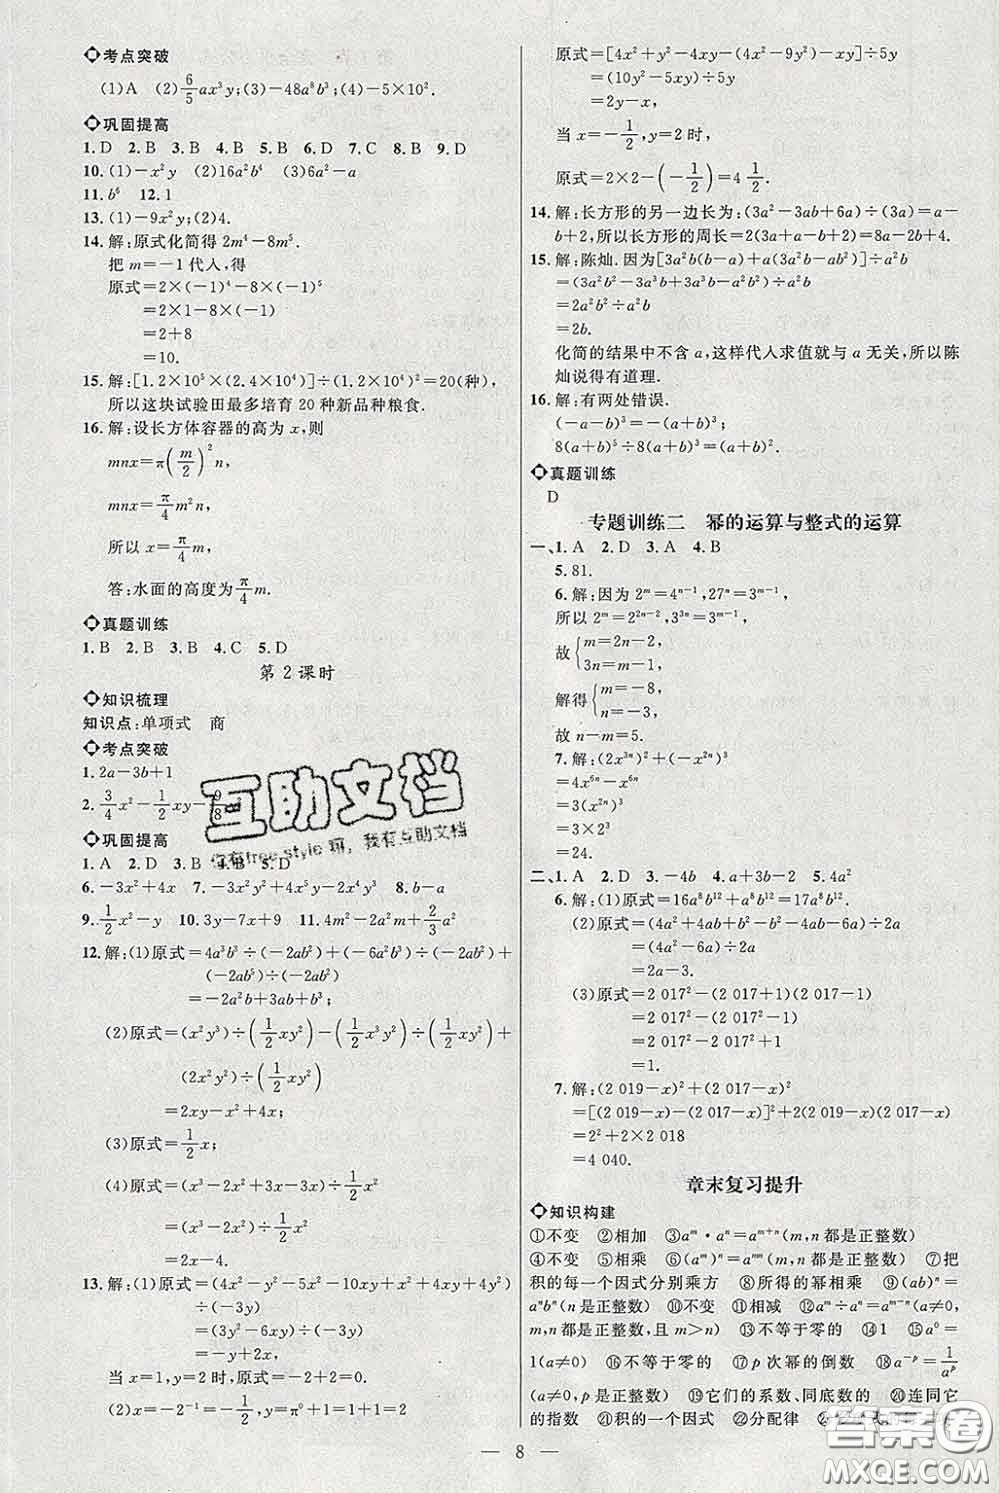 考点突破
(1)A (2)6/5ax³y;(3)-48a⁸b³;(4)-5×10².
巩固提高
1.D 2.B 3.B 4.B 5.D 6.D 7.C 8.B 9.D
10.(1)-x²y (2)16a²b⁴ (3)6a²-a
11.b⁶ 12.1
13.(1)-9x²y;(2)4.
14.解:原式化简得 2m⁴-8m⁵.
把 m=-1 代入,得
原式=2×(-1)⁴-8×(-1)⁵
=2×1-8×(-1)
=2+8
=10.
15.解:[1.2×10⁵×(2.4×10⁴)]÷(1.2×10⁴)²=20(种),
所以这块试验田最多培育 20 种新品种粮食.
16.解:设长方体容器的高为 x,则
mnx=π(m/2)²n,
mnx=π/4m²n,
所以 x=π/4m,
答:水面的高度为π/4m.
真题训练
1.B 2.B 3.B 4.C 5.D
第 2 课时
知识梳理
知识点:单项式 商
考点突破
1.2a-3b+1
2.3/4x²-1/2xy-9/8
巩固提高
1.A 2.D 3.B 4.B 5.D
6.-3x²+4x 7.-3x²y²+5x²y-2x⁴y³ 8.b-a
9.1/2x²-y 10.3y-7x+9 11.4m²-2a²m+2/3a²
12.解:(1)原式=4a³b³÷(-2ab²)+(-6a²b³)÷(-2ab²)+
(-2ab⁵)÷(-2ab²)
=-2a²b+3ab+b³;
(2)原式=(x²y³)÷(1/2xy²)-(1/2x³y²)÷(1/2xy²)+
(2x²y²)÷(1/2xy²)
=2xy-x²+4x;
(3)原式=1/2x;
(4)原式=(x³-2x²+x³-x³)÷1/2x²
=(x³-2x²)÷1/2x²
=2x-4.
13.解:(1)原式=(4x²-y²-5x²-10xy+x²+4xy+4y²)
÷(-3y)
=(3y²-6xy)÷(-3y)
=-y+2x.
当 x=1,y=2 时,原式=-2+2=0.
(2)x=-2⁻¹=-1/2,y=π⁰+1=1+1=2
原式=[4x²+y²-4xy-(4x²-9y²)-xy]÷5y
=(10y²-5xy)÷5y
=2y-x,
当 x=-1/2,y=2 时,
原式=2×2-(-1/2)=4 1/2.
14.解:长方形的另一边长为:(3a²-3ab+6a)÷(3a)=a-
b+2,所以长方形的周长=2(3a+a-b+2)=8a-2b+4.
15.解:陈灿.因为[3a²b(b-a)+a(3a²b-ab²)]÷a²b
=(3a²b²-3a³b+3a³b-a²b²)÷a²b
=2a²b²÷a²b
=2b.
化简的结果中不含 a,这样代入求值就与 a 无关,所以陈
灿说得有道理.
16.解:有两处错误.
(-a-b)³=-(a+b)³,
8(a+b)⁵÷8(a+b)³=(a+b)².
真题训练
D
专题训练二 幂的运算与整式的运算
一、1.A 2.D 3.A 4.B
5.81.
6.解:因为 2ᵐ=4ⁿ⁻¹,27ⁿ=3ᵐ⁻¹,
所以 2ᵐ=2²ⁿ⁻²,3³ⁿ=3ᵐ⁻¹,
故{m=2n-2,
3n=m-1,
解得{m=-8,
n=-3,
故 n-m=5.
7.解:(2x³ⁿ)²-(x²ⁿ)³
=4x⁶ⁿ-x⁶ⁿ
=3(x²ⁿ)³
=3×2³
=24.
二、1.A 2.D 3.-4b 4.a+3b-2 5.4a²
6.解:(1)原式=16a⁸b¹²+a⁸b¹²=17a⁸b¹².
(2)原式=(4a²+4ab-6a-4ab)÷2a
=(4a²-6a)÷2a
=2a-3.
(3)原式=2 017²-(2 017+1)(2 017-1)
=2 017²-(2 017²-1)
=2 017²-2 017²+1
=1.
7.解:(2 019-x)²+(2 017-x)²
=[(2 019-x)-(2 017-x)]²+2(2 019-x)(2 017-x)
=2²+2×2 018
=4 040.
章末复习提升
知识构建
①不变 ②相加 ③aᵐ·aⁿ=aᵐ⁺ⁿ(m,n都是正整数)
④不变 ⑤相乘 ⑥(aᵐ)ⁿ=aᵐⁿ(m,n都是正整数) ⑦把
积的每一个因式分别乘方 ⑧所得的幂相乘 ⑨(ab)ⁿ=
aⁿbⁿ(n 是正整数) ⑩不变 ⑪相减 ⑫aᵐ÷aⁿ=aᵐ⁻ⁿ(a≠0,
m,n 都是正整数,且 m>n) ⑬不等于零的 ⑭1 ⑮a⁰=
1(a≠0) ⑯不等于零的 ⑰p 次幂的倒数 ⑱a⁻ᵖ=1/aᵖ
(a≠0,p 是正整数) ⑲它们的系数、同底数的 ⑳连同它
的指数 ㉑积的一个因式 ㉒分配律
— 8 —
互助文档
你有free style 嘛，我有互助文档
答案卷
MXQE.COM